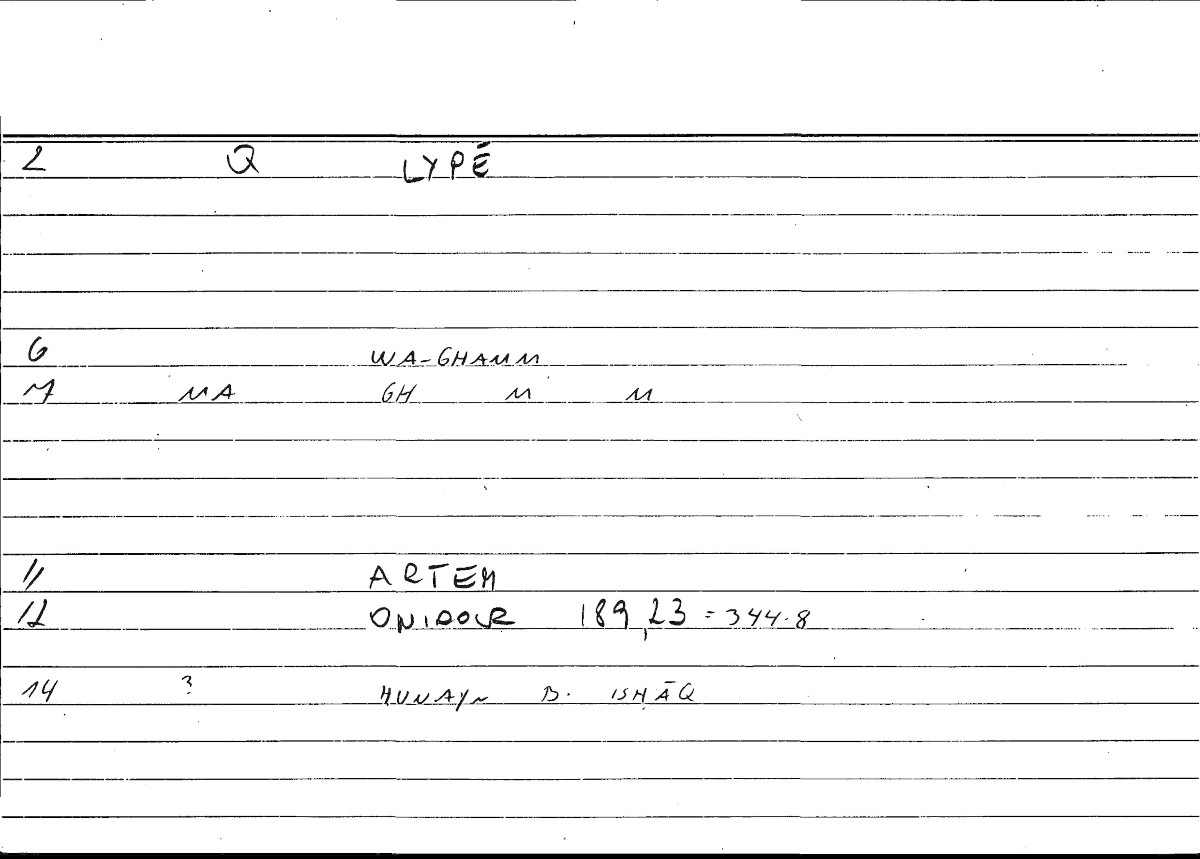 2 Q LYPĒ
6 WA-GHAMM
7 MA GH M M
11 ARTEM
12 ONIDOCR 189,23 = 344.8
14 ? ḤUNAYN B. ISḤĀQ